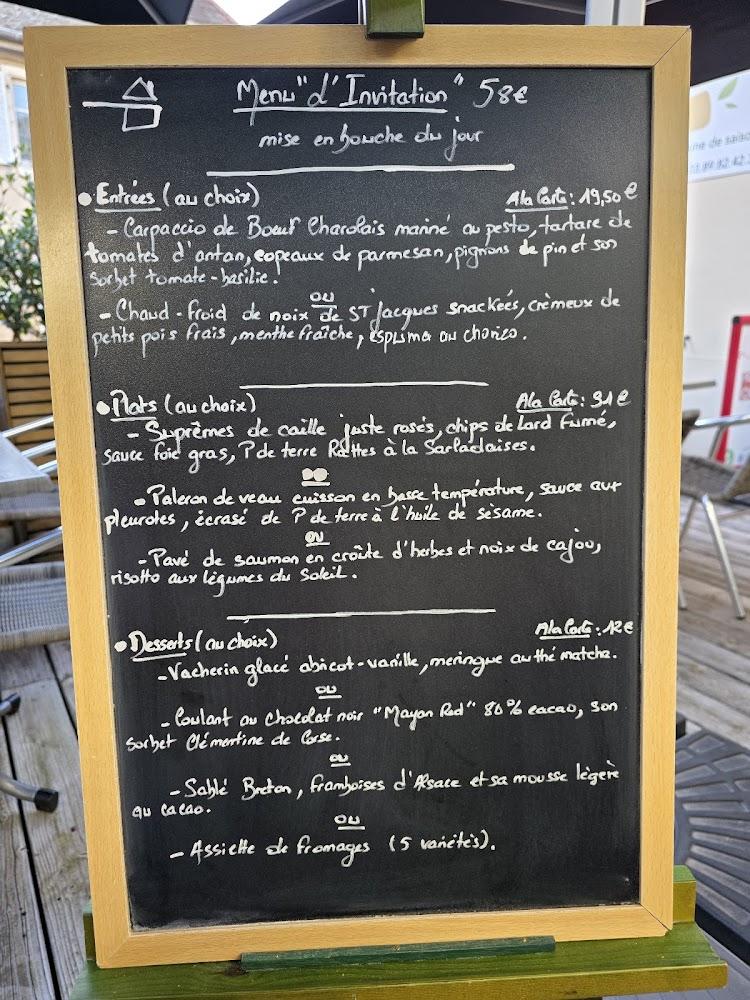 Menu "d'Invitation" 58€
mise en bouche du jour
• Entrées (au choix)
A la Carte : 19,50 €
- Carpaccio de Bœuf Charolais mariné au pesto, tartare de
tomates d'antan, copeaux de parmesan, pignons de pin et son
sorbet tomate-basilic.
ou
- Chaud-froid de noix de ST Jacques snackées, crèmeux de
petits pois frais, menthe fraîche, espuma au chorizo.
• Plats (au choix)
A la Carte : 31 €
- Suprêmes de caille juste rosés, chips de Lard Fumé,
sauce foie gras, P de terre Rattes à la Sarladaises.
ou
- Paleron de veau cuisson en basse température, sauce aux
pleurotes, écrasé de P de terre à l'huile de sèsame.
ou
- Pavé de saumon en croûte d'herbes et noix de cajou,
risotto aux légumes du Soleil.
• Desserts (au choix)
A la Carte : 12€
- Vacherin glacé abicot-vanille, meringue au thé matcha.
ou
- Coulant au chocolat noir "Mayan Red" 80% cacao, son
sorbet Clémentine de Corse.
ou
- Sablé Breton, framboises d'Alsace et sa mousse lègère
au cacao.
ou
- Assiette de fromages (5 variétés).